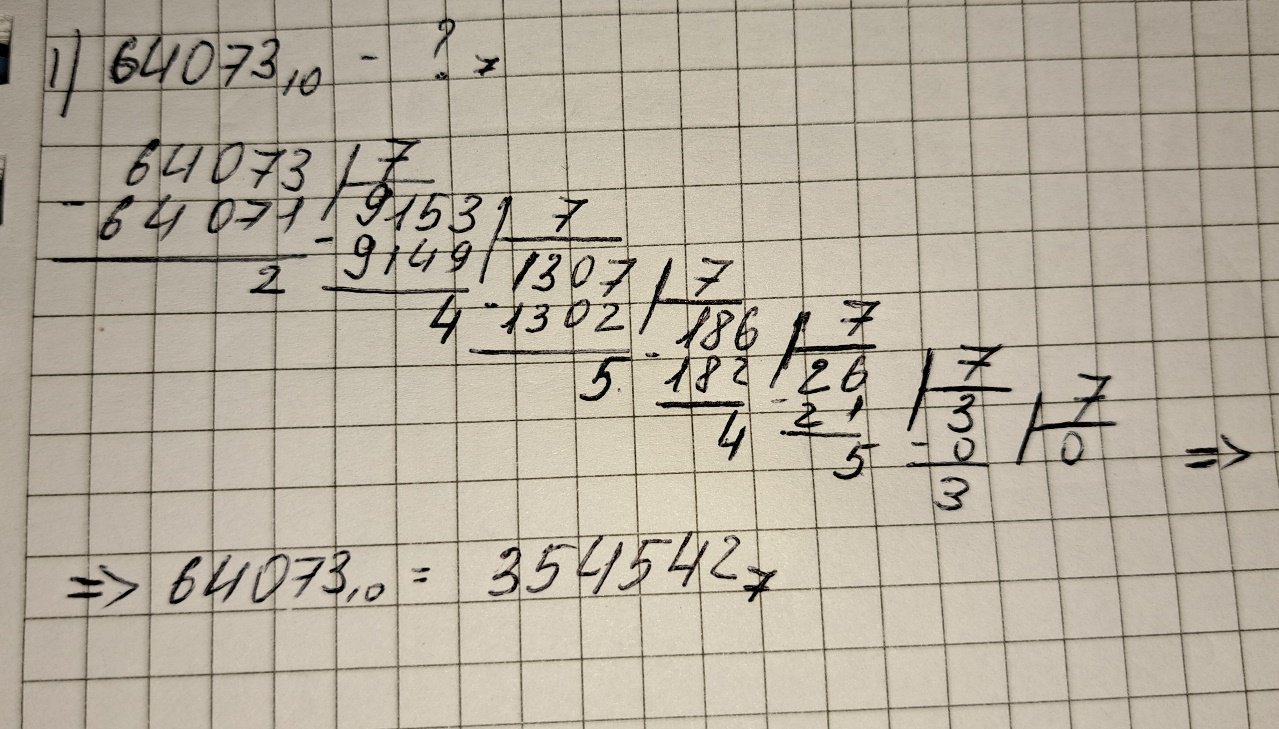 1) 64073₁₀ - ?₇
64073 | 7
- 64071 - 9153 | 7
2 - 9149 1307 | 7
4 - 1302 186 | 7
5 - 182 26 | 7
4 - 21 3 | 7
5 - 0 0 =>
3
=> 64073₁₀ = 354542₇